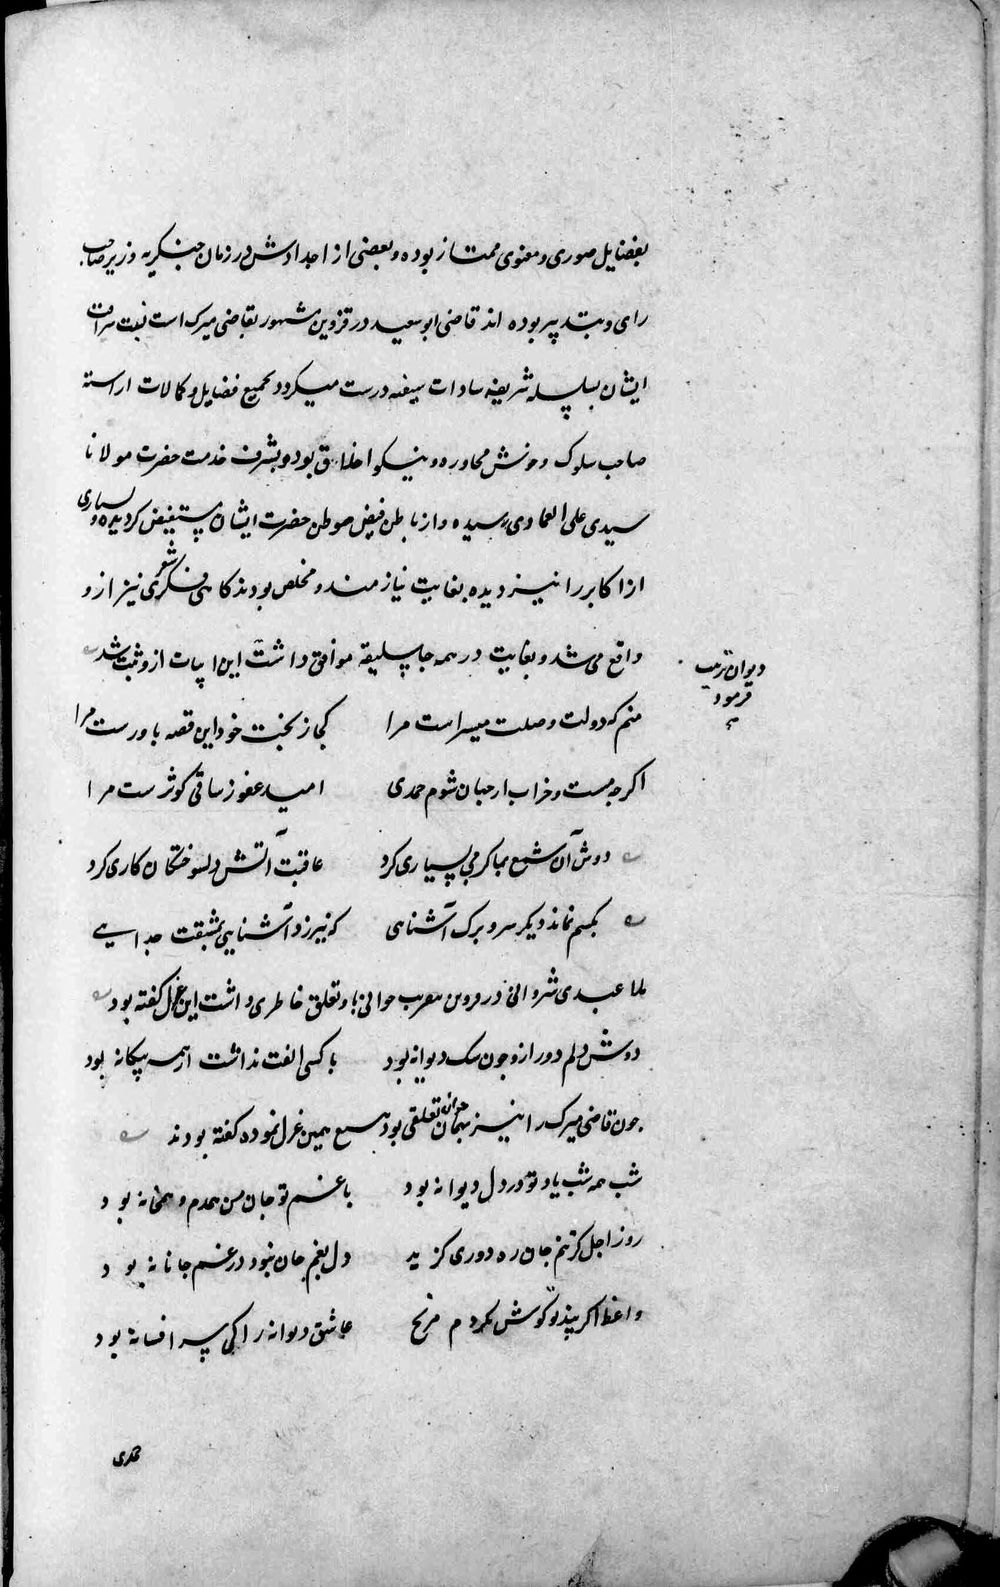 بفضایل صوری و معنوی ممتاز بوده و بعضی از اجدادش در زمان چنگیزیه وزیر صاحب
رای و تدبیر بوده اند قاضی ابوسعید در قزوین مشهور بقاضی میرک است نسبت
ایشان بسلسله شریفه سادات سیفیه درست میکردد بجمیع فضایل و کمالات اراسته
صاحب سلوک و خوش محاوره و نیکو اخلاق بود و بشرف خدمت حضرت مولانا
سیدی علی العمادی رسیده و از باطن فیض موطن حضرت ایشان مستفیض کردیده و بسیاری
از اکابر را نیز دیده بغایت نیازمند و مخلص بودند کاهی فکر شعری نیز ازو
واقع می شد و بغایت در همه جا سلیقه موافق داشت این ابیات ازو ثبت شد
دیوان ترتیب
فرمود
منم که دولت وصلت میسراست مرا کجا ز بخت خود این قصه باورست مرا
اکرچه مست و خراب از جهان شوم حمدی امید عفو ز ساقی کوثرست مرا
دوش آن شمع بما کرمی بسیاری کرد عاقبت آتش دلسوختکان کاری کرد
بکسم نماند دیکر سر و برک آشنایی که نیرزد آشنایی بمشقت جدایی
ملا عبدی شروانی در قزوین بجوانی تعلق خاطری داشت این غزل کفته بود
دوش دلم دور ازو چون سک دیوانه بود با کسی الفت نداشت از همه بیکانه بود
چون قاضی میرک را نیز بهمان جوان تعلقی بود تتبع همین غزل نموده کفته بودند
شب همه شب یاد تو در دل دیوانه بود با غم تو جان من همدم و همخانه بود
روز اجل کر تنم جان ره دوری کزید دل بغم جان نبود در غم جانانه بود
واعظ اکر پند تو کوش نکردم مرنج عاشق دیوانه را کی سر افسانه بود
حمدی